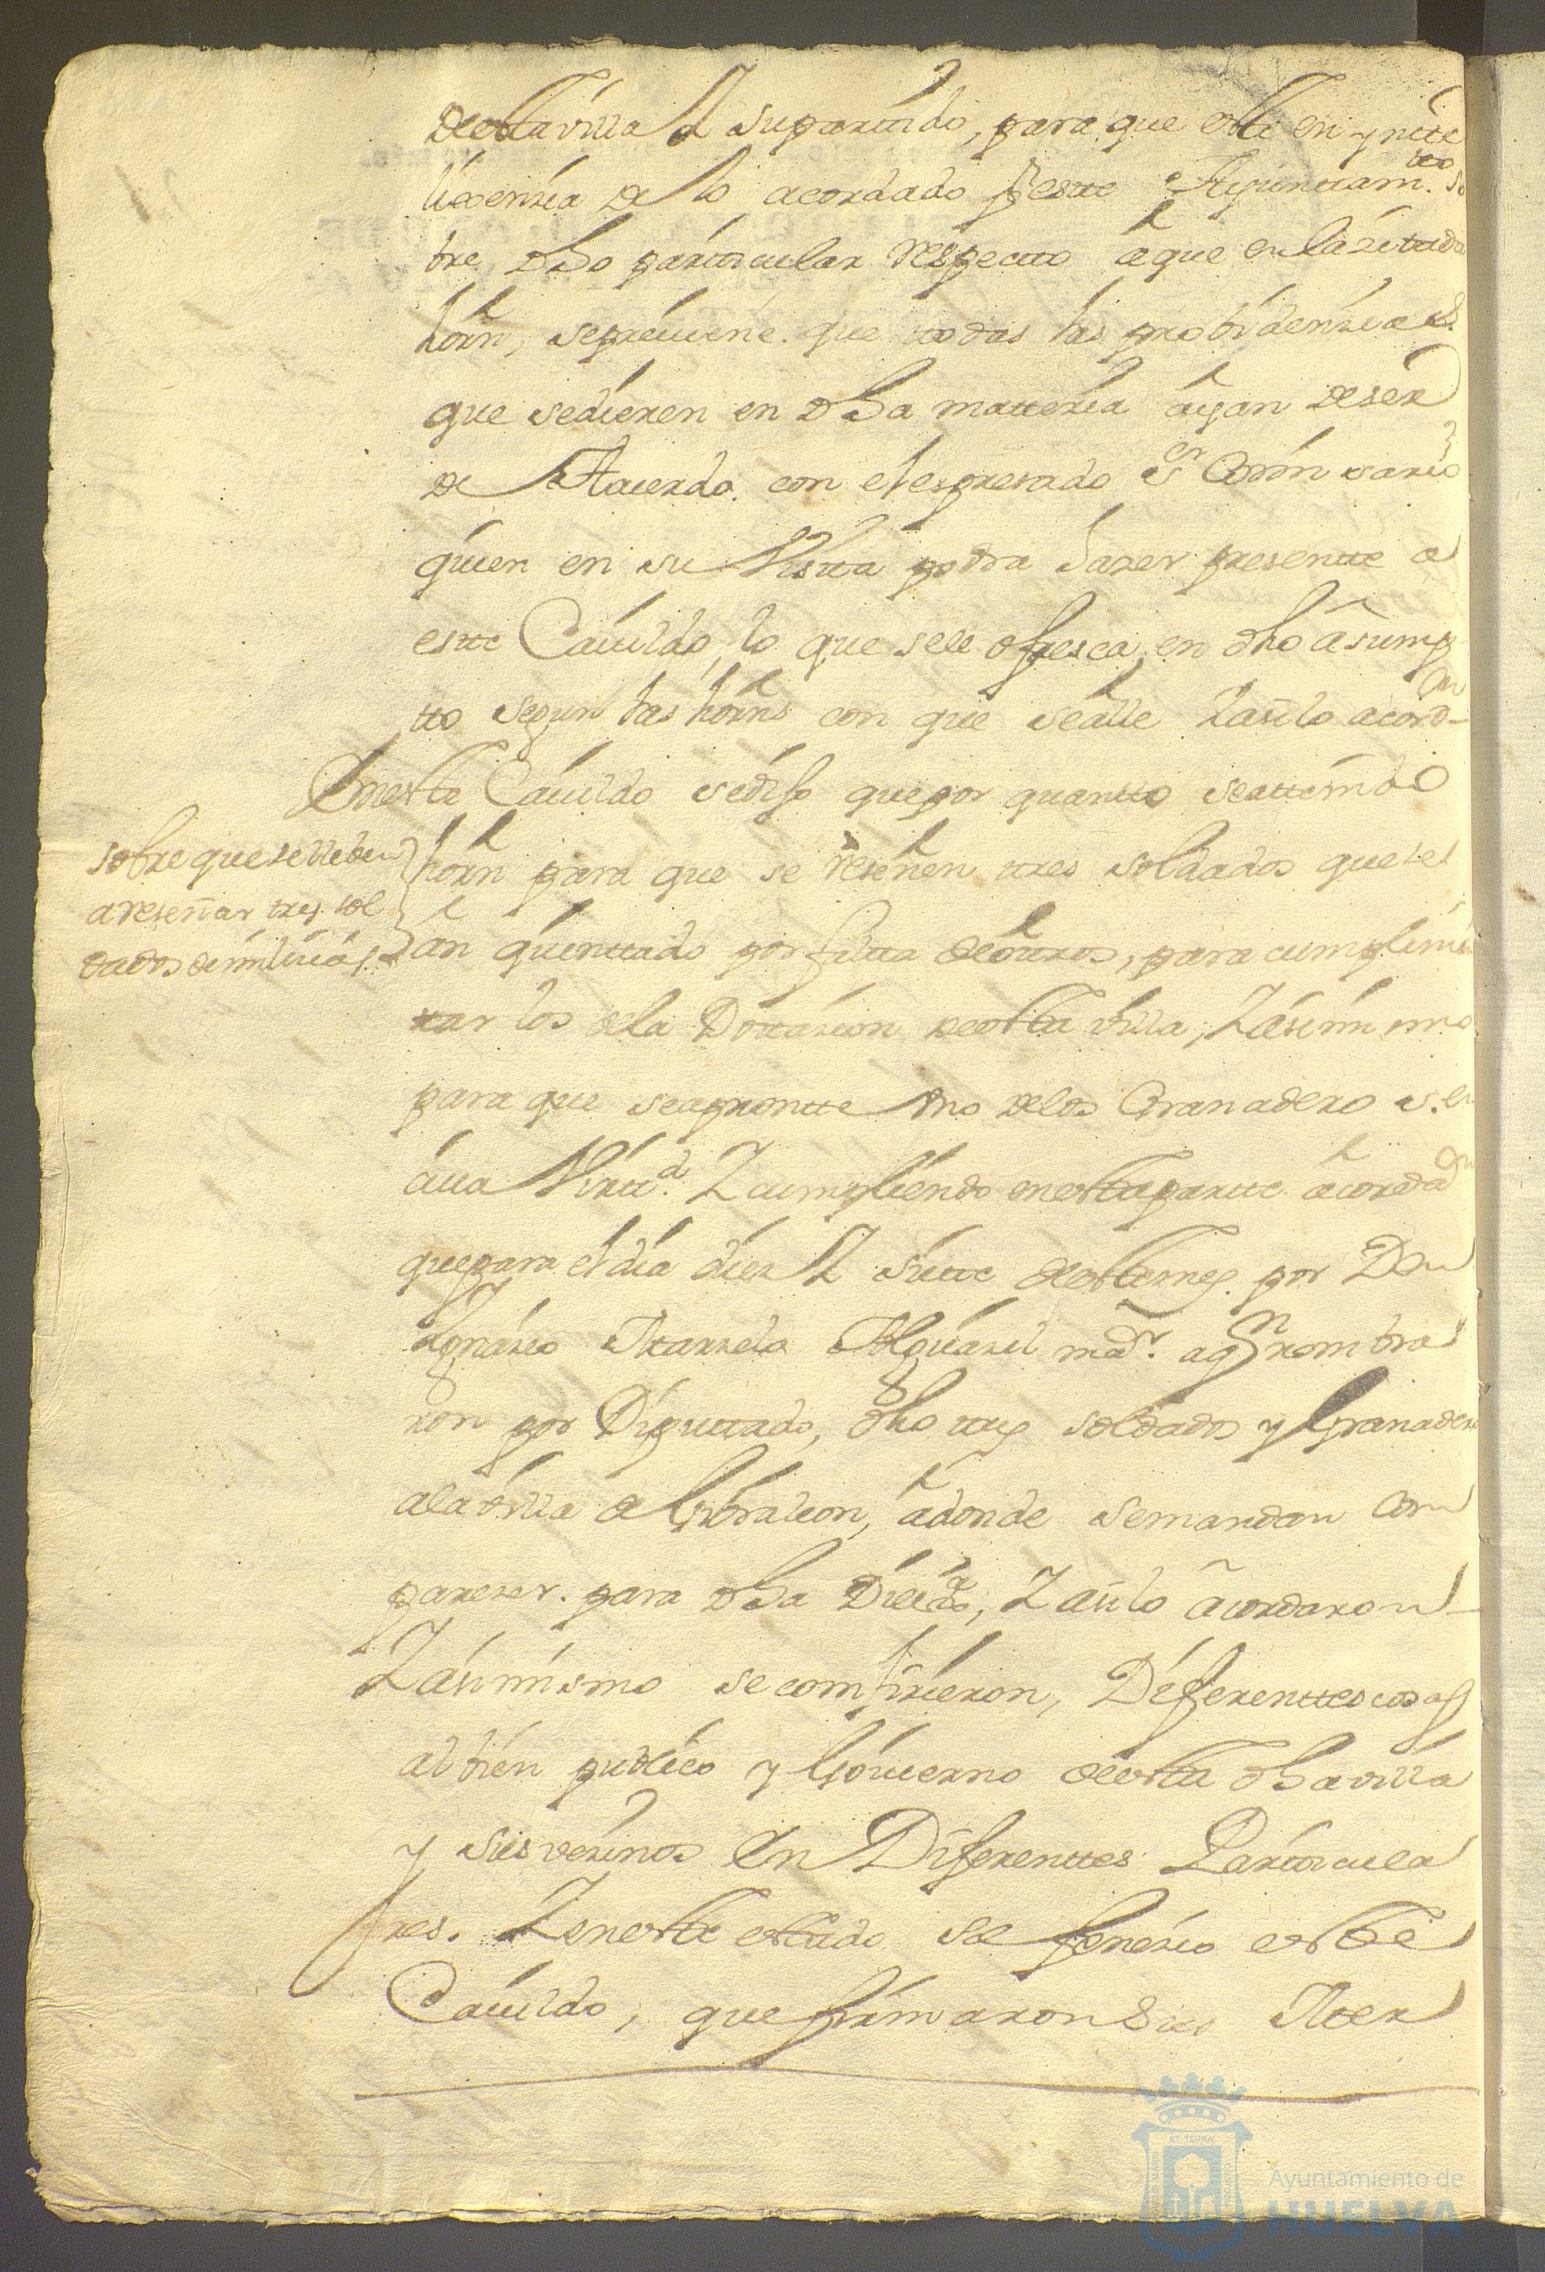 destavilla Y supartido, para que este en ynte
lixensia de lo acordado por este Ayuntiam.to so
bre dho partticular respecto a que en la zitada
horn, se previene que todas las probidensias
que se dieren en dha matteria ayan de ser
de Acuerdo con el espresado sr Comisario
quien en su Visita podra haser presentte a
este Cavildo lo que se le ofresca en dho asump
tto segun las horns con que se alle Y asi lo acord
En este Cavildo se dijo que por quantto se a ttenido
sobre que se lleben
a reseñar tres sol
dados de milicias
horn para que se reseñen tres soldados que se
an quinttado por faltta de otros, para cumplimen
tar los de la Dotacion de esta villa, Y asimismo
para que se aprontte uno de los Granaderos, en
cuia Virttd. Y cumpliendo en esta partte acordaron
que para el dia diez Y siette de este mes. por Don
Ygnasio Alguasil mor. a qn nombra
ron por Diputtado, dho tres soldados y Granadero
a la villa de Gibraleon, a donde se mandan com
pareser. para dha Y asi lo acordaron
Y asimismo se comfirieron, Diferenttes cosas
al bien publico y Govierno de esta dha villa
y sus vesinos En Diferenttes Partticula
res. Y en este estado se fenesio este
Cavildo, que firmaron Sus Mer
ET TERRA
Ayuntamiento de
HUELVA